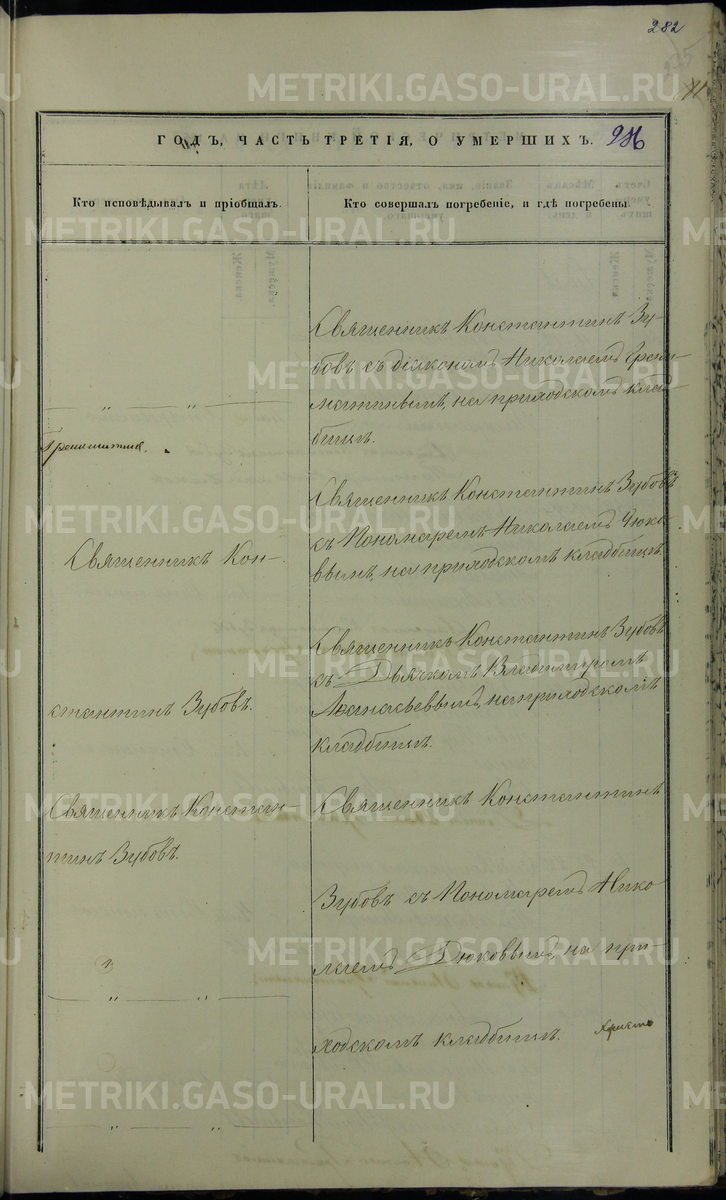 282
ГОДЪ, ЧАСТЬ ТРЕТІЯ, О УМЕРШИХЪ.
Кто исповѣдывалъ и пріобщалъ.
Кто совершалъ погребеніе, и гдѣ погребены.
Священникъ Константинъ Зу-
бовъ съ діакономъ Николаемъ
на приходскомъ кла-
дбищѣ.
Священникъ Кон-
Священникъ Константинъ Зубовъ
съ Пономаремъ Николаемъ Дюко-
вымъ, на приходскомъ кладбищѣ.
стантинъ Зубовъ.
Священникъ Константинъ Зубовъ
съ Дьячкомъ Владимиромъ
Аѳанасьевымъ, на приходскомъ
кладбищѣ.
Священникъ Констан-
тинъ Зубовъ.
Священникъ Константинъ
Зубовъ съ Пономаремъ Нико-
лаемъ Дюковымъ, на при-
ходскомъ кладбищѣ.
METRIKI.GASO-URAL.RU